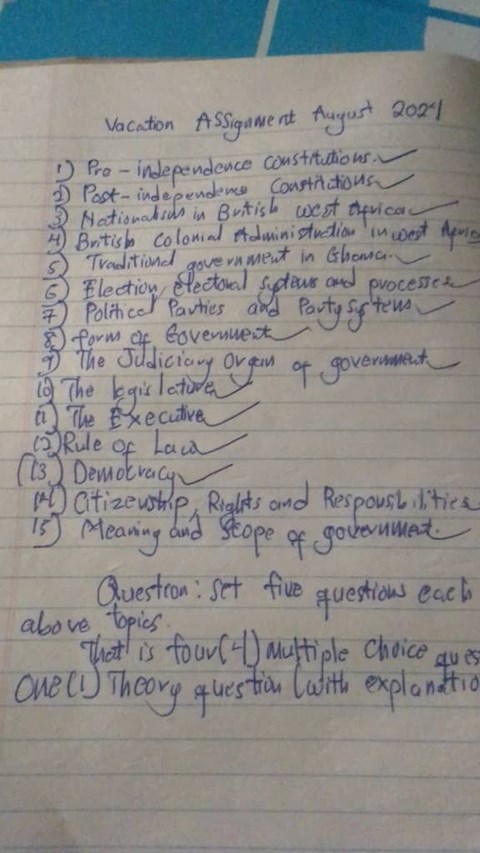 Vacation Assignment August 2024
1) Pre-independence constitutions.
2) Post-independence Constitutions
3) Nationalism in British West Africa
4) British Colonial Administration in west Africa
5) Traditional government in Ghana.
6) Election, electoral systems and processes
7) Political Parties and Party systems
8) form of Government
9) The Judiciary Organ of government
10) The legislature
11) The Executive
12) Rule of Law
13) Democracy
14) Citizenship, Rights and Responsibilities
15) Meaning and Scope of government.
Question: Set five questions each
above topics.
That is four(4) multiple choice ques
One (1) Theory question (with explanatio